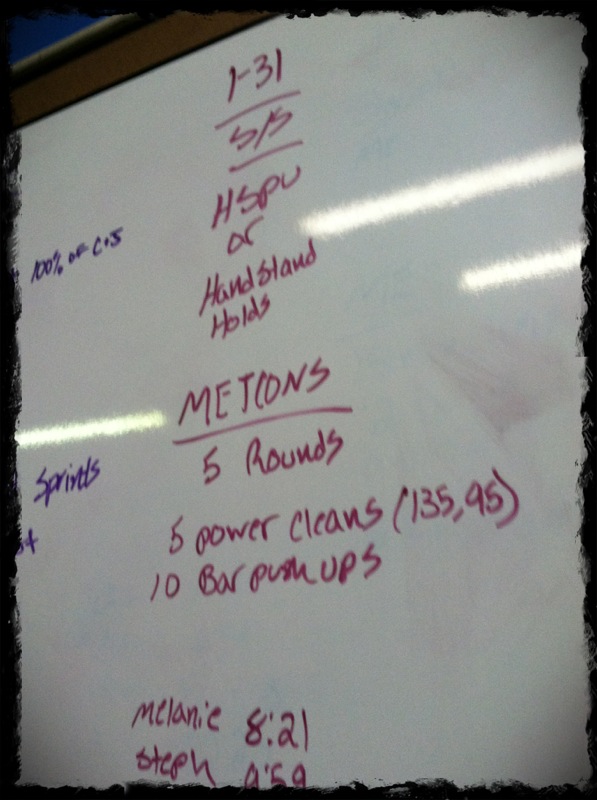 1-31
S/S
HSPU
or
Handstand
Holds
100% of C+J
METCONS
5 Rounds
Sprints
5 power cleans (135,95)
10 Bar push ups
Melanie 8:21
Steph 9:59